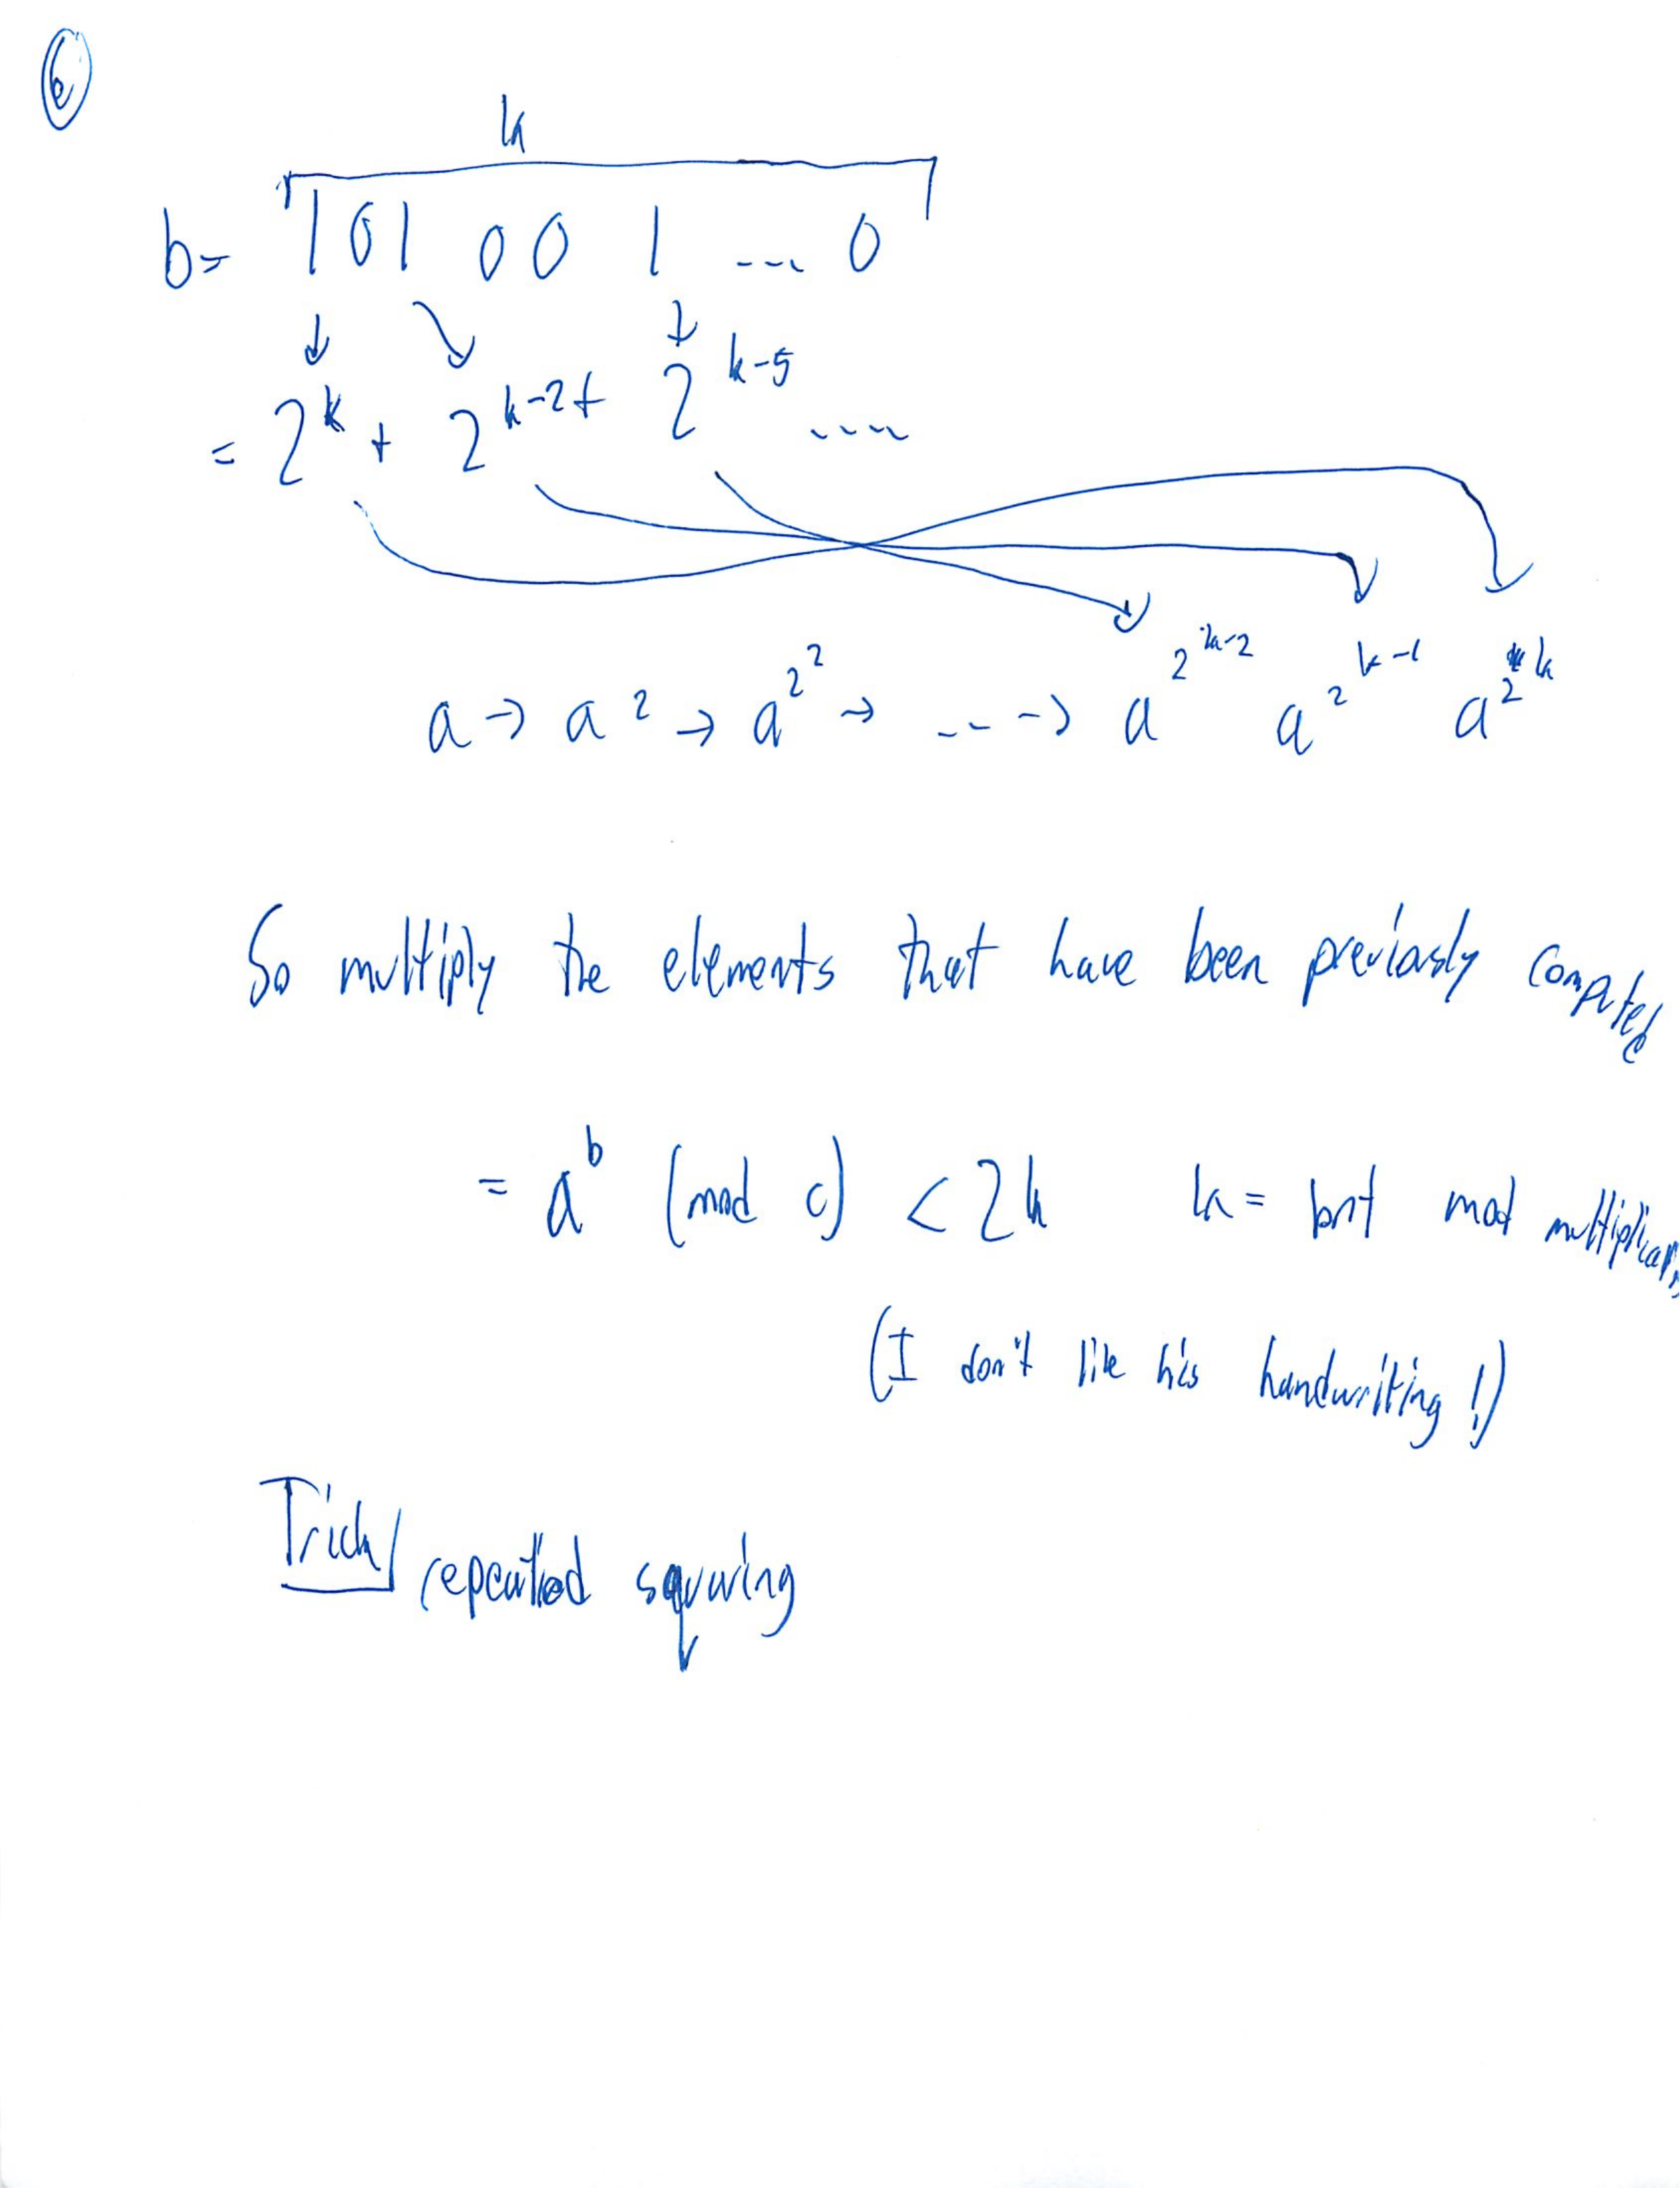 6
k
b= 101 00 1 ... 0
= 2^k + 2^{k-2} + 2^{k-5} ....
a → a^2 → a^{2^2} → ... → a^{2^{k-2}} a^{2^{k-1}} a^{2^k}
So multiply the elements that have been previously computed
= a^b (mod c) < 2k k = bit mod
(I don't like his handwriting!)
Trick repeated squaring